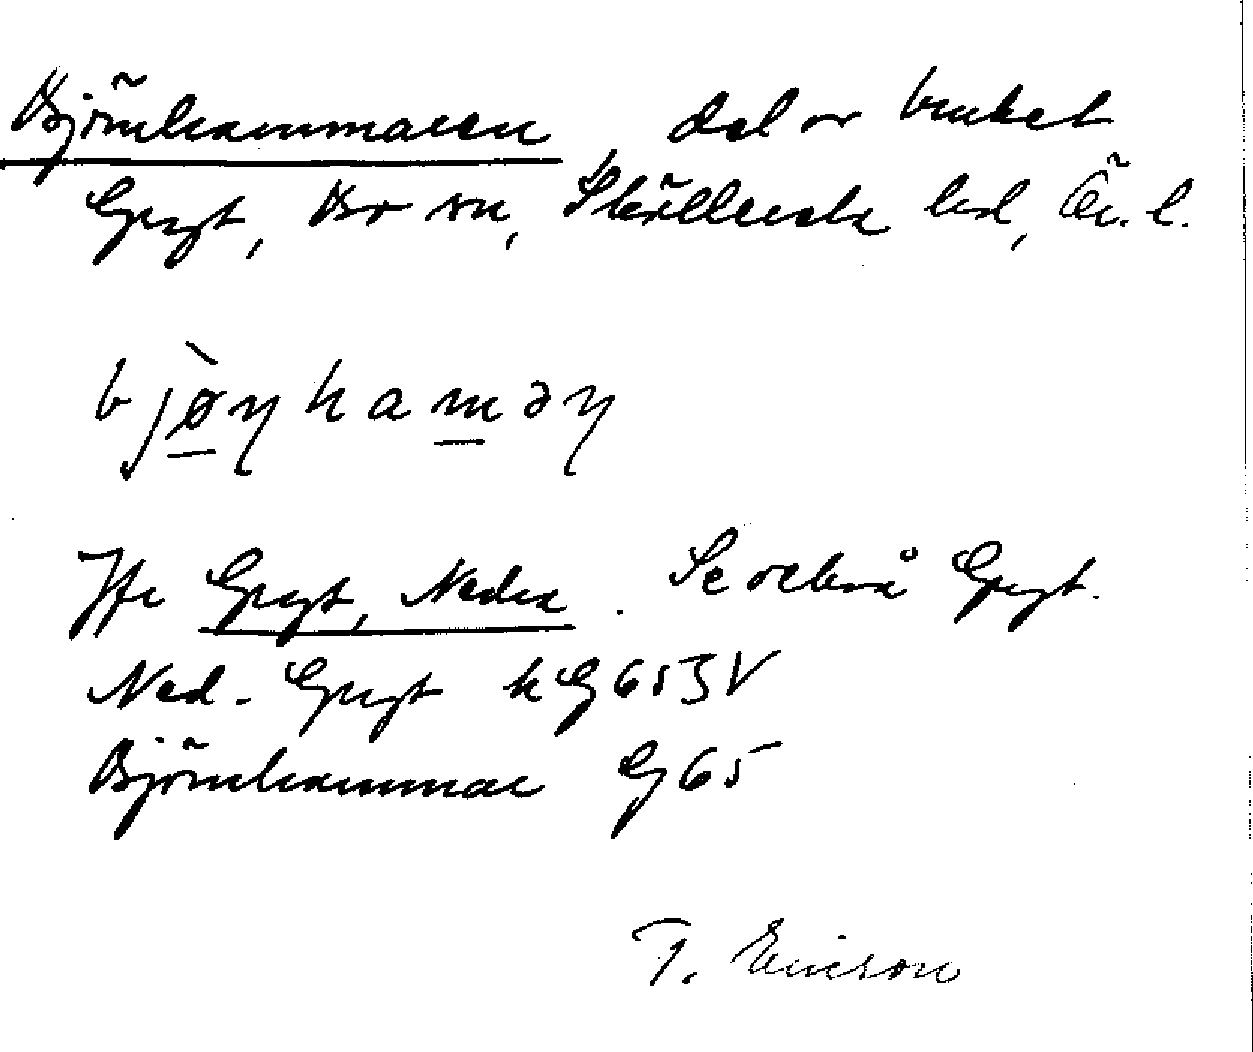 Björnhammaren del av bruket
Gryt, Bo sn, Sköllersta hd, Ör. l.
bjø̀ηhamǝη
Jfr Gryt, Nedra. Se också Gryt.
Ned. Gryt kG 65 3V
Björnhammar G 65
T. Ericson